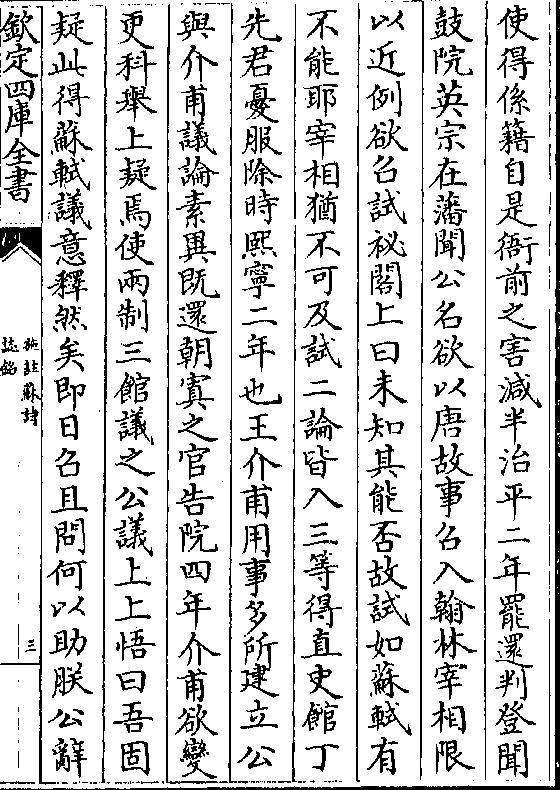 使得係籍自是衙前之害減半治平二年罷還判登聞
鼓院英宗在藩聞公名欲以唐故事召入翰林宰相限
以近例欲召試祕閣上曰未知其能否故試如蘇軾有
不能耶宰相猶不可及試二論皆入三等得直史館丁
先君憂服除時熙寧二年也王介甫用事多所建立公
與介甫議論素異既還朝寘之官告院四年介甫欲變
更科舉上疑焉使兩制三館議之公議上上悟曰吾固
疑此得蘇軾議意釋然矣即日召且問何以助朕公辭
欽定四庫全書
施註蘇詩
誌銘
三